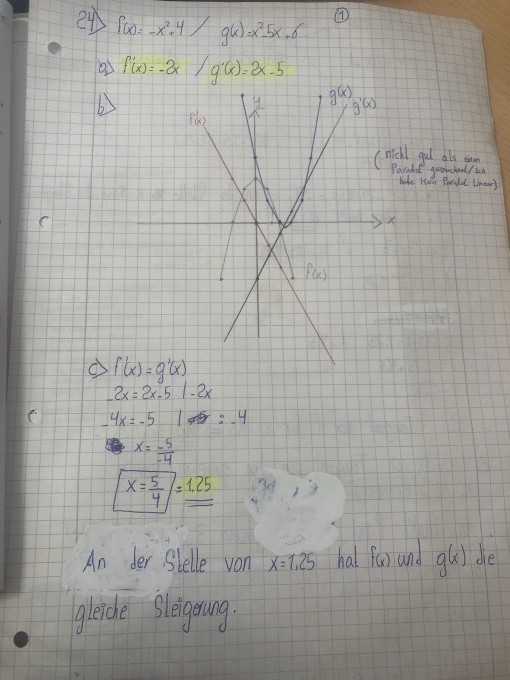 ①
24) f(x)= -x²+4 / g(x)=x²-5x+6
a) f'(x)= -2x / g'(x)= 2x-5
b)
y
g(x)
g'(x)
f'(x)
(nicht gut als einen
Parabel gezeichnet/ich
habe kein Parabel Linear)
x
f(x)
c) f'(x) = g'(x)
-2x = 2x-5 | -2x
-4x = -5 | : -4
x = -5/-4
x = 5/4 = 1.25
An der Stelle von x=1,25 hat f(x) und g(x) die
gleiche Steigerung.